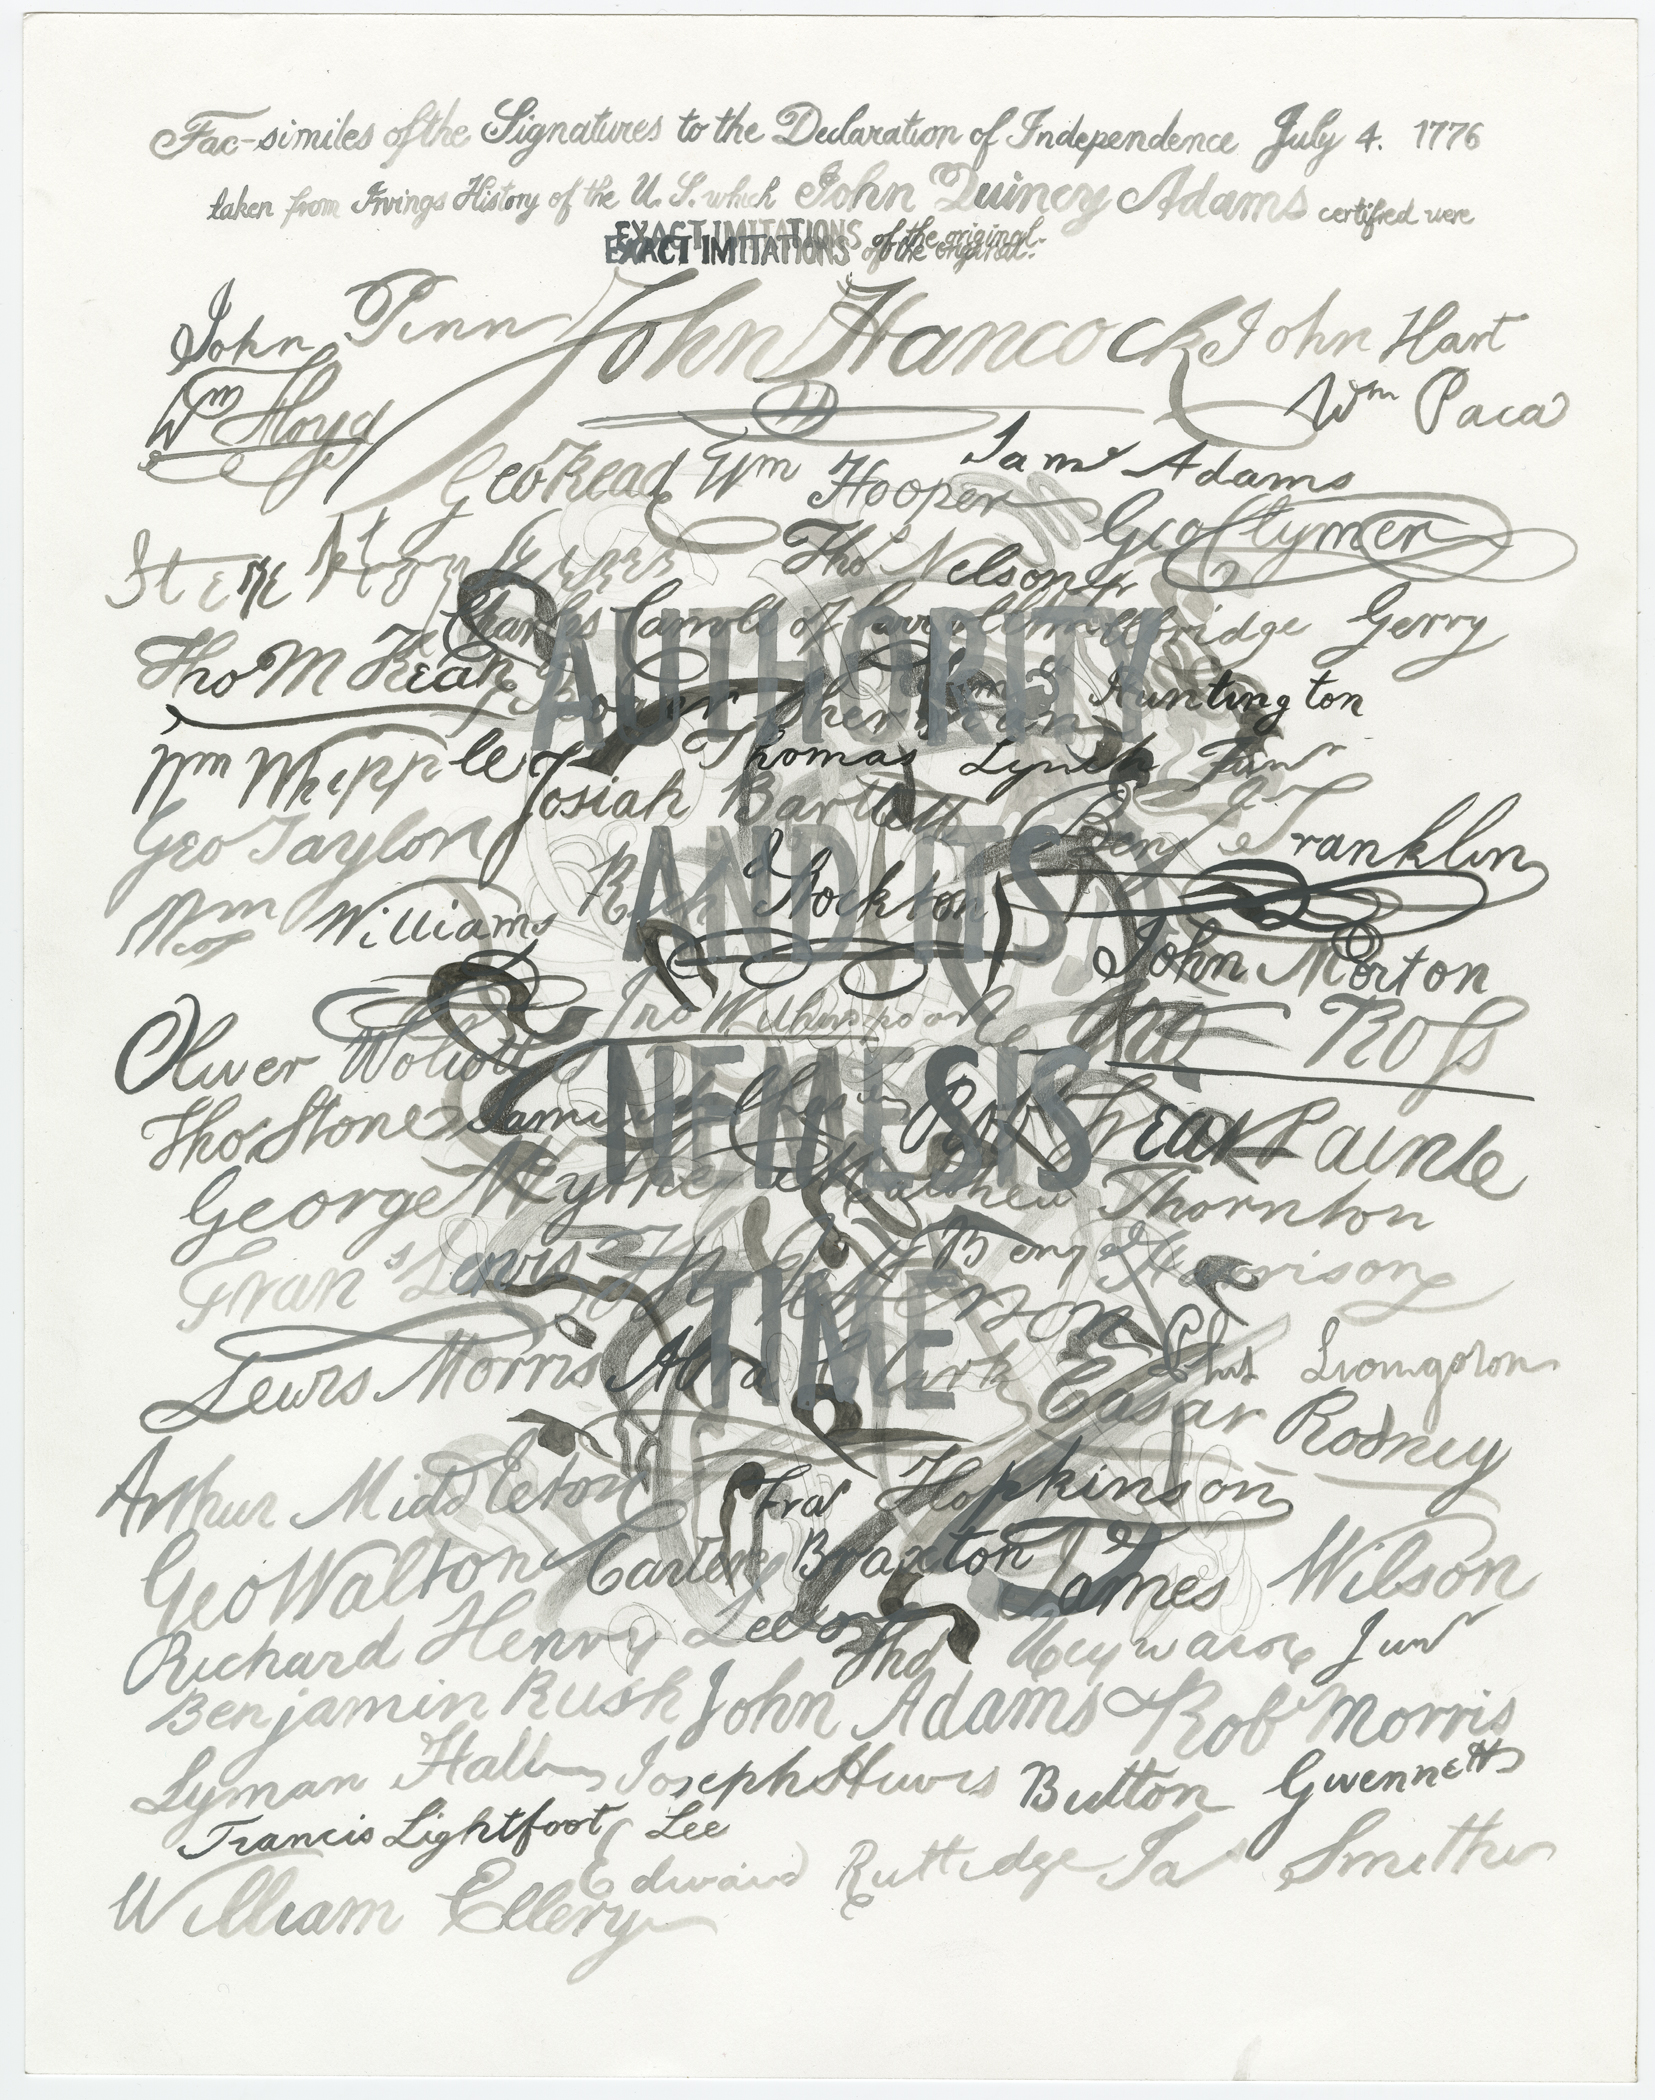 Fac-similes of the Signatures to the Declaration of Independence July 4. 1776
taken from Irvings History of the U. S. which John Quincy Adams certified were
EXACT IMITATIONS of the original.
EXACT IMITATIONS of the original.
John Penn John Hancock John Hart
Wm Floyd Wm Paca
Geo Read Wm Hooper Saml Adams
Geo Clymer
Step Hopkins Thos Nelson jr
Charles Carroll of Carrollton Elbridge Gerry
AUTHORITY
Tho M Kean Roger Sherman Saml Huntington
Wm Whipple Thomas Lynch Junr
Josiah Bartlett Benj Franklin
Geo Taylor
AND ITS
Wm Williams Rich Stockton
John Morton
Oliver Wolcott Jno Witherspoon Geo Ross
NEMESIS
Tho Stone Samuel Chase Rob Treat Paine
George Wythe Matthew Thornton
Frans Lewis Th Jefferson Benj Harrison
TIME
Lewis Morris Abra Clark Phil Livingston
Cesar Rodney
Arthur Middleton Fras Hopkinson
Geo Walton Carter Braxton James Wilson
Richard Henry Lee Tho Heyward Junr
Benjamin Rush John Adams Rob Morris
Lyman Hall Joseph Hewes Button Gwennett
Francis Lightfoot Lee
William Ellery Edward Ruttidge Jas Smith